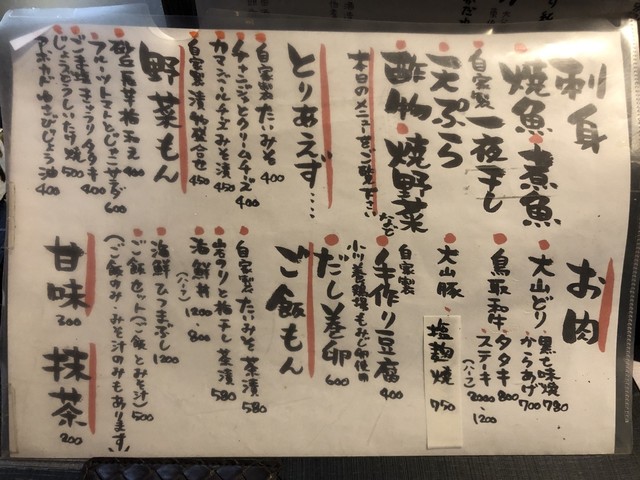 刺身
焼魚・煮魚
自家製一夜干し
天ぷら
酢物・焼野菜など
本日のメニューをご覧下さい
とりあえず…
自家製たいみそ 400
チャンジャとクリームチーズ 400
カマンベールチーズみそ漬 450
自家製漬物盛合せ 450
野菜もん
砂丘長芋梅和え 400
フルーツトマトとじゃこサラダ 600
ごま塩キュウリタタキ 400
じょうどうしいたけ焼 500
アボカドわさびじょう油 400
お肉
大山どり 黒七味焼 780
からあげ 700
鳥取和牛 タタキ 800
ステーキ 2000
(ハーフ) 1200
大山豚 塩麹焼 750
自家製
手作り豆腐 400
小川養鶏場もみじ卵使用
だし巻卵 600
ご飯もん
自家製たいみそ茶漬 580
岩のりと梅干し茶漬 580
海鮮丼 1200
(ハーフ) 800
海鮮ひつまぶし 1200
ご飯セット(ご飯とみそ汁) 500
(ご飯のみ・みそ汁のみもあります)
甘味 300
抹茶 200